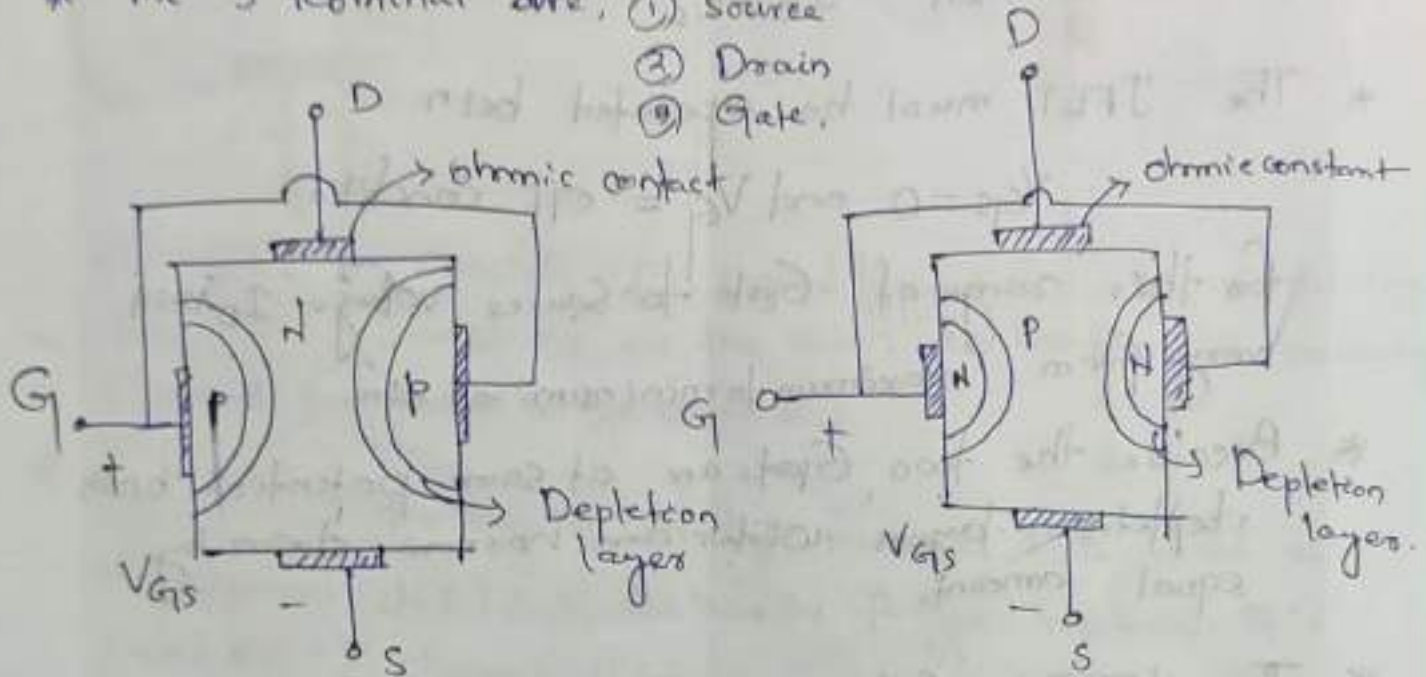 * The 3 terminal are, ① Source
② Drain
③ Gate.
D
ohmic contact
N
P
P
G
+
Depletion
layer
VGS
-
S
D
ohmic constant
P
N
N
G
+
Depletion
layer.
VGS
-
S